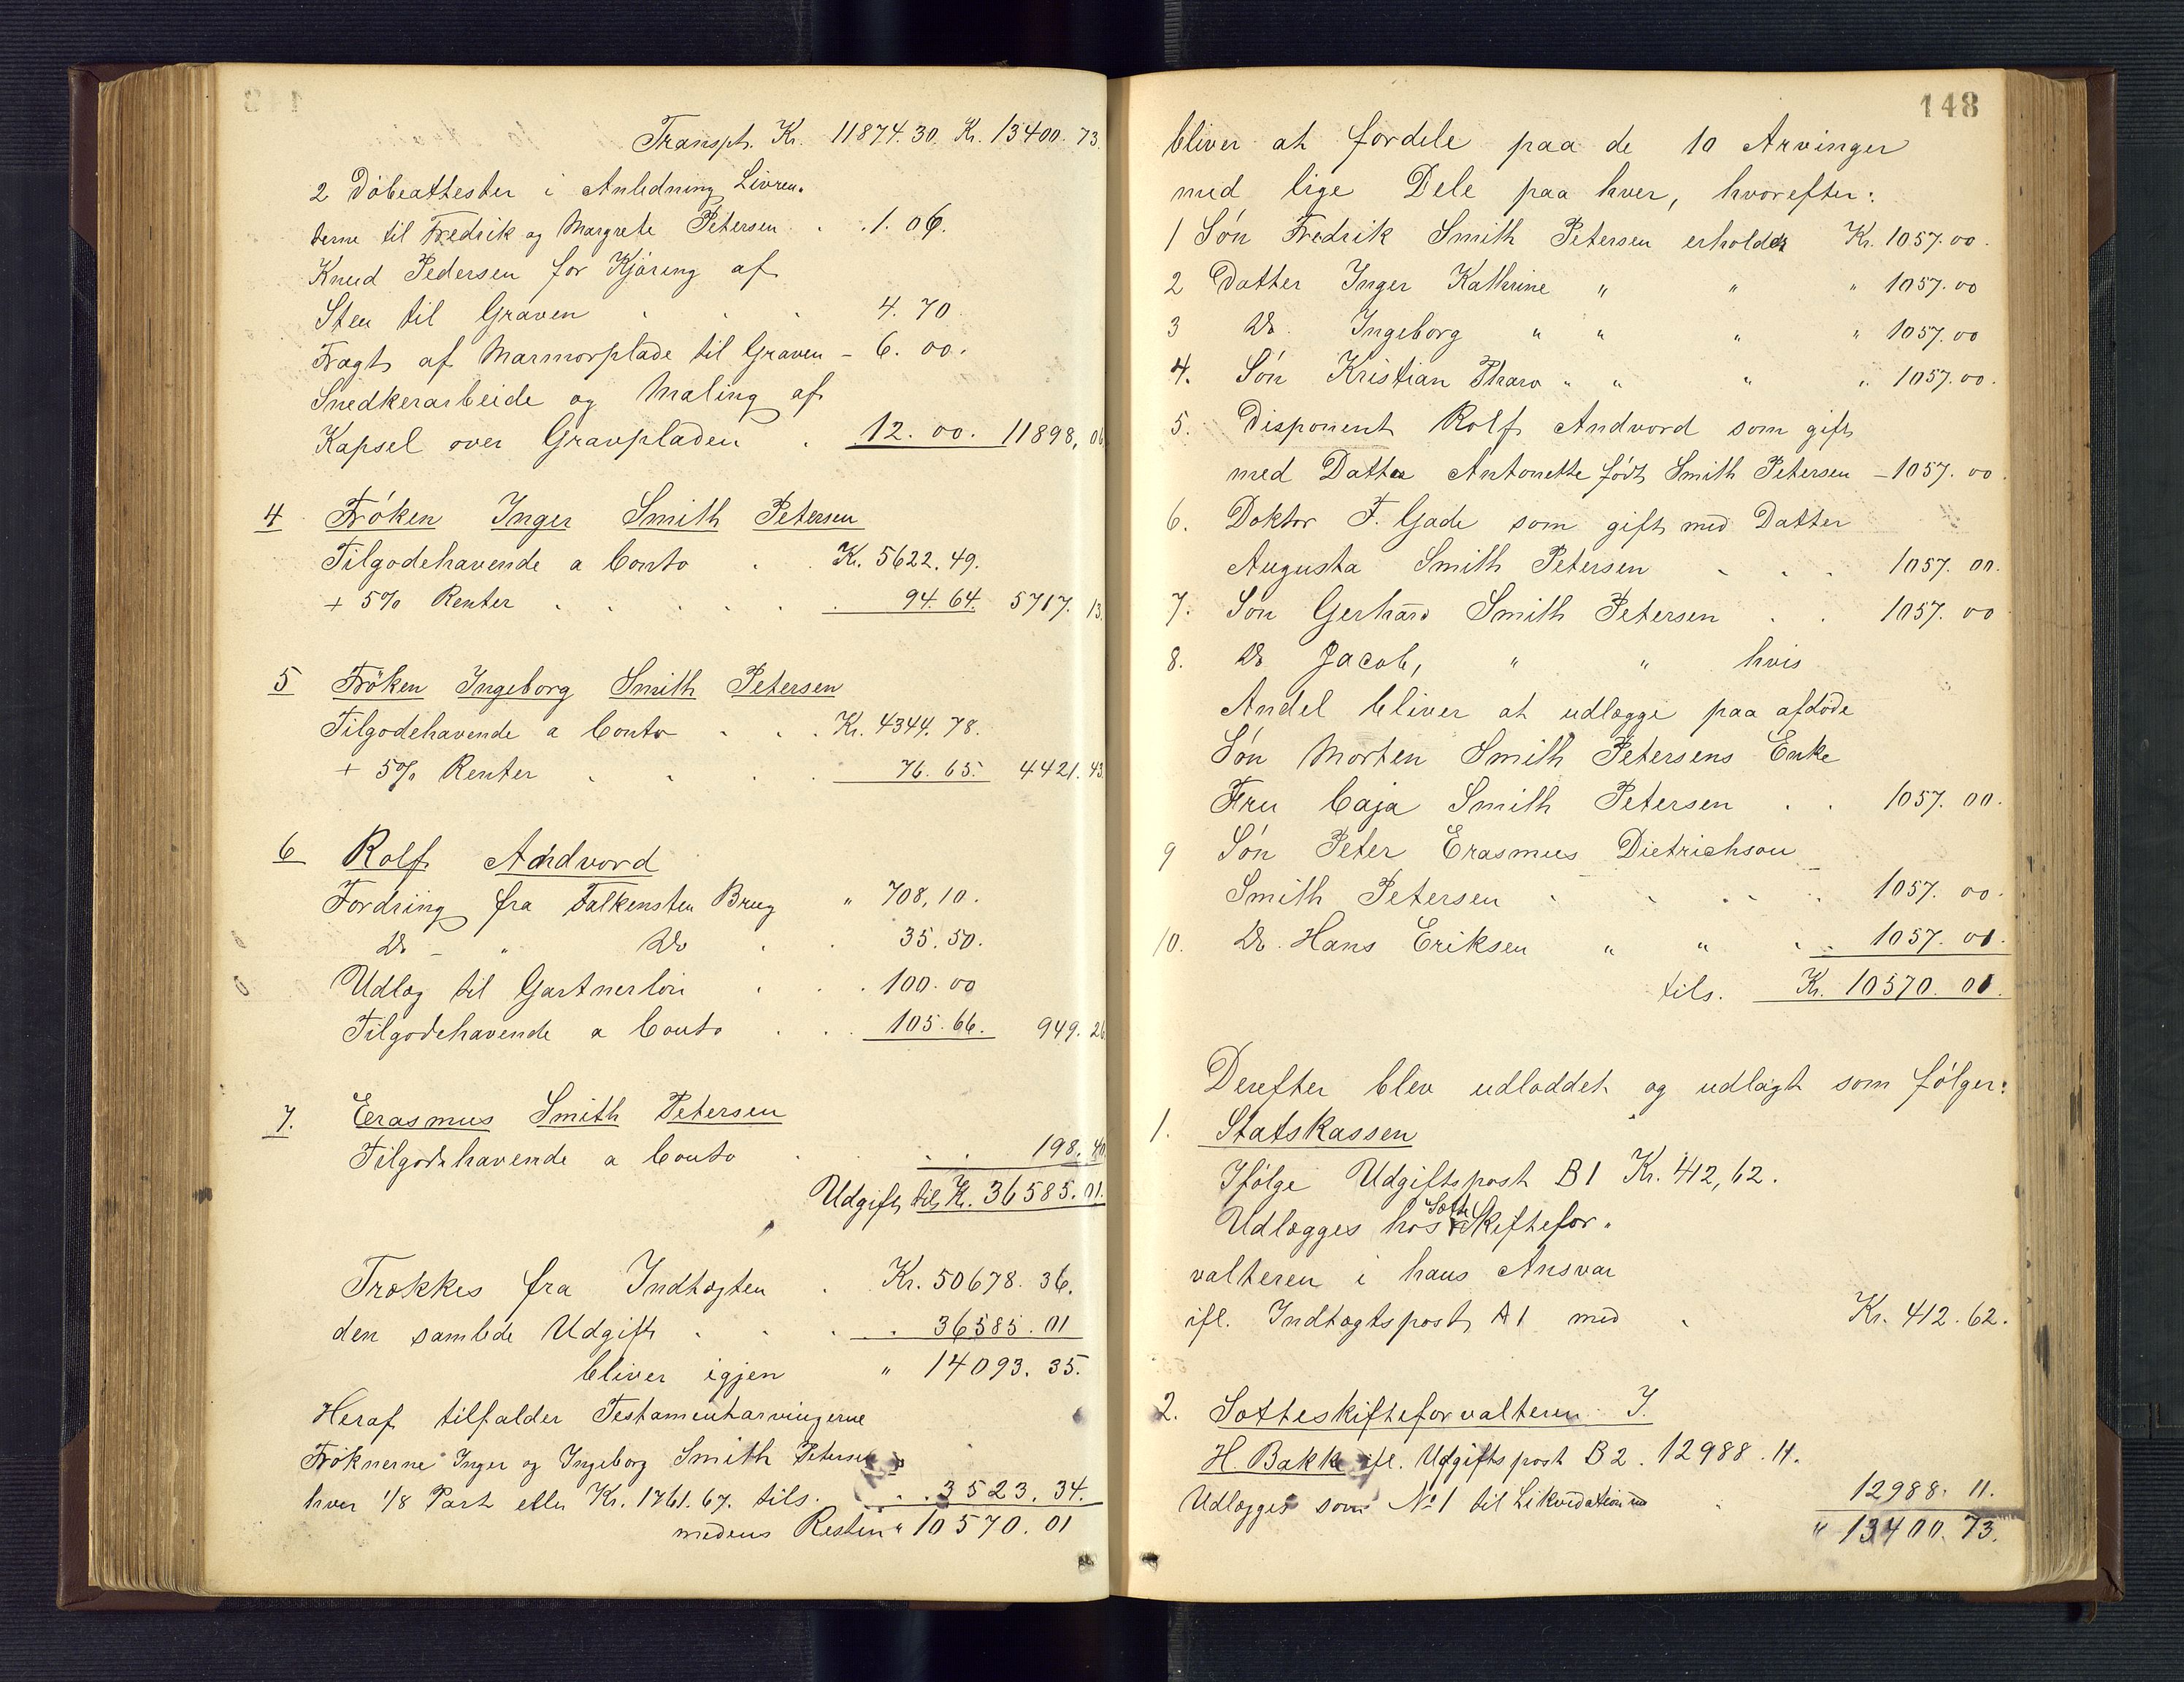 Transpt. Kr. 11874.30. Kr. 13400.73.
2 Døbeattester i Anledning Livren-
terne til Fredrik og Margrete Petersen . . 1.06.
Knud Pedersen for Kjøring af
Sten til Graven . . . 4.70
Fragt af Marmorplade til Graven - 6.00.
Snedkerarbeide og Maling af
Kapsel over Gravpladen . 12.00. 11898,06
4 Frøken Inger Smith Petersen
Tilgodehavende a Conto . . Kr. 5622.49.
+ 5% Renter . . . . . 94.64. 5717.13.
5 Frøken Ingeborg Smith Petersen
Tilgodehavende a Conto . . . Kr. 4344.78.
+ 5% Renter . . . . 76.65. 4421.43.
6 Rolf Andvord
Fordring fra Falkensten Brug " 708,10.
Do - " Do . . 35.50.
Udlæg til Gartnerløn . . . 100.00
Tilgodehavende a Conto . . . 105.66. 949.26
7. Erasmus Smith Petersen
Tilgodehavende a Conto . . . . 198.40
Udgift tils Kr. 36585.01.
Trækkes fra Indtægten . . Kr. 50678.36.
den samlede Udgift . . . . . 36585.01
bliver igjen " 14093.35.
Heraf tilfalder Testamentarvingerne
Frøknerne Inger og Ingeborg Smith Petersen
hver 1/8 Part eller Kr. 1761.67. tils. . . 3523.34.
medens Resten " 10570.01
148
bliver at fordele paa de 10 Arvinger
med lige Dele paa hver, hvorefter:
1 Søn Fredrik Smith Petersen erholder Kr. 1057.00.
2 Datter Inger Kathrine " " " 1057.00
3 Do. Ingeborg " " " " 1057.00
4. Søn Kristian Tharo " " " " 1057.00.
5. Disponent Rolf Andvord som gift
med Datter Antonette født Smith Petersen - 1057.00.
6. Doktor F. Gade som gift med Datter
Augusta Smith Petersen . . . 1057.00.
7. Søn Gerhard Smith Petersen . . 1057.00
8. Do Jacob, " " hvis
Andel bliver at udlægge paa afdøde
Søn Morten Smith Petersens Enke
Fru Caja Smith Petersen . . 1057.00.
9 Søn Peter Erasmus Dietrichson
Smith Petersen . . . . . 1057.00.
10. Do. Hans Eriksen " " . . 1057.01.
tils. Kr. 10570.01.
Derefter blev udloddet og udlagt som følger:
1. Statskassen
Ifølge Udgiftspost B1 Kr. 412,62.
Udlægges hos Sotteskiftefor-
valteren i hans Ansvar
ifl. Indtægtspost A1 med . Kr. 412.62.
2. Sotteskifteforvalteren J.
H. Bakke ifl. Udgiftspost B2. 12988.11.
Udlægges som No 1 til Likvidationen . 12988.11.
" 13400.73.